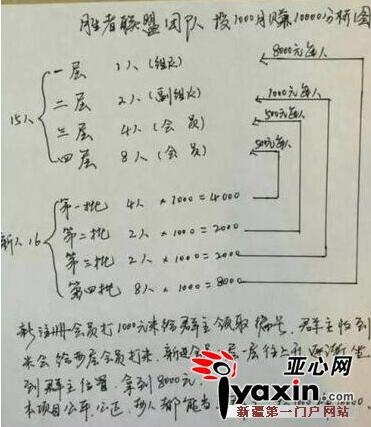 胜者联盟团队 投1000月赚10000分析图
8000元每人
一层 1人 (组长)
二层 2人 (副组长) 1000元每人
15人 500元每人
三层 4人 (会员)
四层 8人 (会员) 500元每人
第一批 4人 × 1000 = 4000
新人16 第二批 2人 × 1000 = 2000
第三批 2人 × 1000 = 2000
第四批 8人 × 1000 = 8000
新注册会员打1000元来给群主领取编号,群主收到
米会给两层会员打米,新进会员一层一层往上升 逐渐坐
到群主位置,拿到8000元,
本项目公平,公正,
亚心网
iyaxin.com
新疆第一门户网站